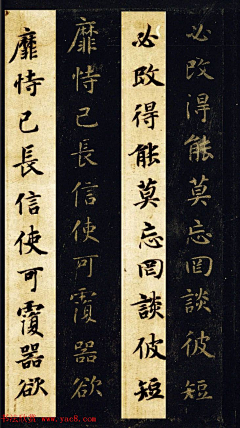 必改得能莫忘罔談彼短
必改得能莫忘罔談彼短
靡恃己長信使可覆器欲
靡恃己長信使可覆器欲
www.yac8.com